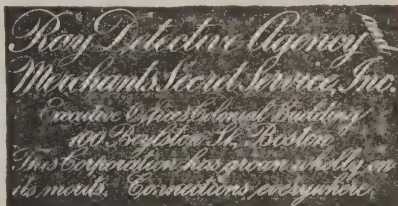 Ray Detective Agency
Merchants Secret Service, Inc.
Executive Offices Colonial Building
100 Boylston St., Boston
This Corporation has grown wholly on
its merits. Connections everywhere